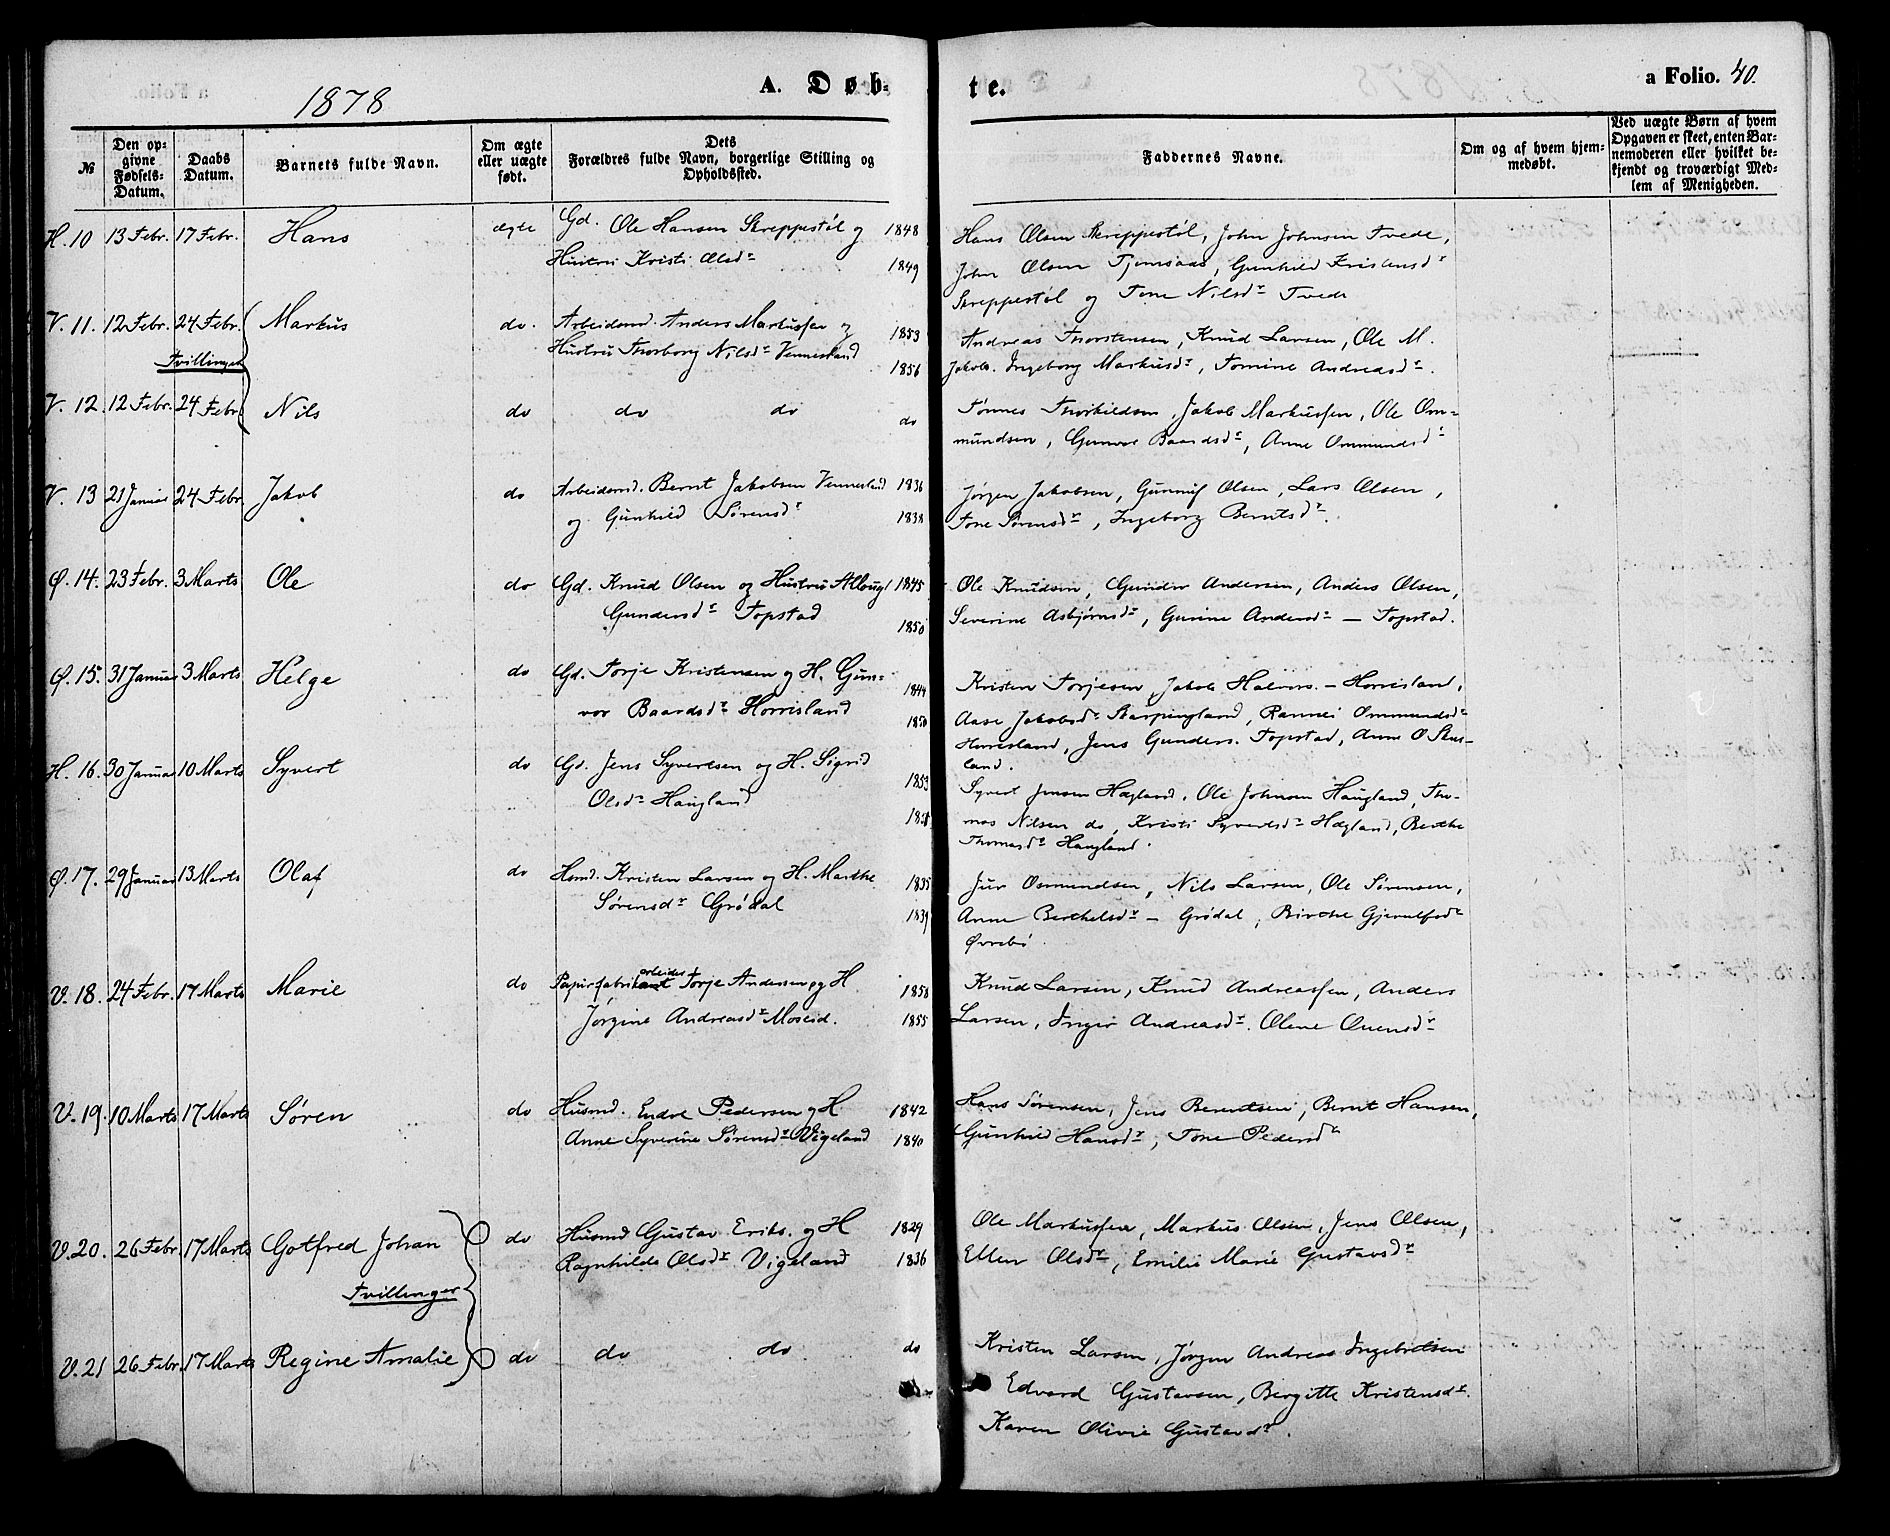 1878
A. Døb-
te.
a Folio. 40.
№
Den op-
givne
Fødsels-
Datum.
Daabs
Datum.
Barnets fulde Navn.
Om ægte
eller uægte
født.
Dets
Forældres fulde Navn, borgerlige Stilling og
Opholdssted.
Faddernes Navne.
Om og af hvem hjem-
medøbt.
Ved uægte Børn af hvem
Opgaven er skeet, enten Bar-
nemoderen eller hvilket be-
kjendt og troværdigt Med-
lem af Menigheden.
H. 10 13 Febr. 17 Febr. Hans ægte Gd. Ole Hansen Skreppestøl og 1848
Hustru Kristi Olsdr 1849
Hans Olsen Skreppestøl, John Johnsen Tvede,
John Olsen Tjomsaas, Gunhild
Skreppestøl og Tone Nilsdr Tvede
V. 11. 12 Febr. 24 Febr. Markus do. Arbeidsmd. Anders Markussen og 1853
Tvillinger
Hustru Thorborg Nilsdr Vennesland 1856
Andreas Thorstensen, Knud Larsen, Ole M.
Jakobs. Ingeborg Markusdr, Tomine Andreasdr.
V. 12. 12 Febr. 24 Febr Nils do do do do
Tønnes Thorkildsen, Jakob Markussen, Ole Om-
mundsen, Gunvor Baardsdr, Anne Ommundsdr
V. 13 21 Januar 24 Febr Jakob do Arbeidsmd. Bernt Jakobsen Vennesland 1836
og Gunhild Sørensdr 1838
Jørgen Jakobsen, Gunnuf Olsen, Lars Olsen,
Tone Sørensdr, Ingeborg Berntsdr.
Ø. 14. 23 Febr. 3 Marts Ole do Gd. Knud Olsen og Hustru Allougl 1845
Gundersdr Topstad 1850
Ole Knudsen, Gunder Andersen, Anders Olsen,
Severine Asbjørnsdr, Gurine Andersdr — Topstad.
Ø. 15. 31 Januar 3 Marts Helge do Gd. Torje Kristensen og H. Gun- 1844
vor Baardsdr Horrisland 1850
Kristen Torjesen, Jakob Halvors. — Horrisland,
Aase Jakobsdr Skarpingland, Rannei Ommundsdr
Horrisland, Jens Gunders. Topstad, Anne O Skus-
land.
H. 16. 30 Januar 10 Marts Syvert do Gd. Jens Syvertsen og H. Sigrid 1853
Olsdr Haugland
Syvert Jensen Hægland, Ole Johnsen Haugland, Tho-
mas Nilsen do, Kristi Syvertsdr Hægland, Berthe
Thomasdr Haugland.
Ø. 17. 29 Januar 13 Marts Olaf do Hsmd. Kristen Larsen og H. Marthe 1835
Sørensdr Grødal 1839
Jur Osmundsen, Nils Larsen, Ole Sørensen,
Anne Berthelsdr — Grødal, Birthe Gjerulfsdr
Øvrebø.
V. 18. 24 Febr. 17 Marts Marie do Papirfabrikarbeider Torje Andersen og H. 1858
Jørgine Andreasdr Moseid. 1855
Knud Larsen, Knud Andreassen, Anders
Larsen, Inger Andreasdr. Olene Ouensdr
V. 19. 10 Marts 17 Marts Søren do Husmd. Endre Pedersen og H. 1842
Anne Syverine Sørensdr Vigeland 1840
Hans Sørensen, Jens Berentsen, Bernt Hansen,
Gunhild Hansdr, Tone Pedersdr
V. 20. 26 Febr. 17 Marts Gotfred Johan do Husmd Gustav Eriks. og H 1829
Ragnhilds Olsdr Vigeland 1836
Tvillinger
Ole Markussen, Markus Olsen, Jens Olsen,
Ellen Olsdr, Emilie Marie Gustavsdr
V. 21 26 Febr. 17 Marts Regine Amalie do do do do
Kristen Larsen, Jørgen Andreas Ingebretsen
Edvard Gustavsen, Bergitte Kristensdr.
Karen Olivie Gustavsdr.